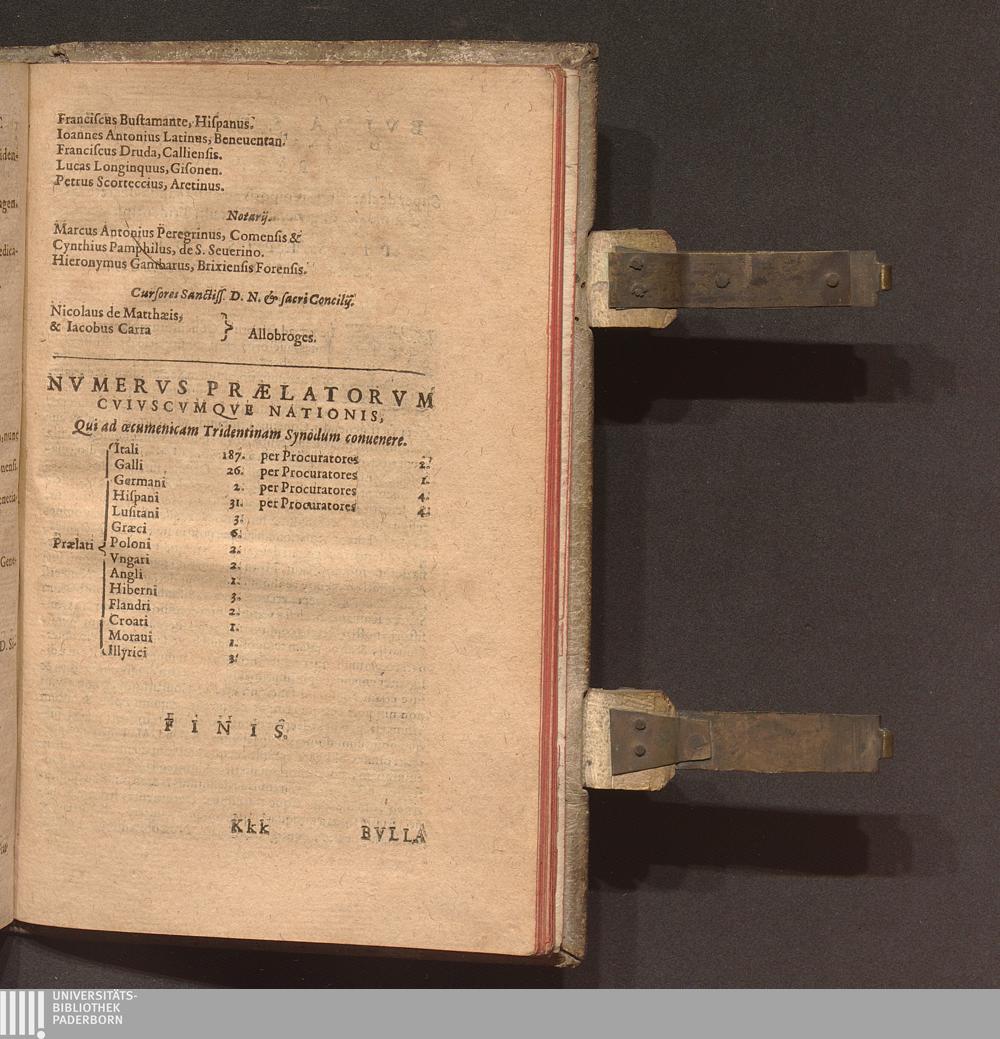 Franciſcus Buſtamante, Hiſpanus.
Ioannes Antonius Latinus, Beneuentan.
Franciſcus Druda, Callienſis.
Lucas Longinquus, Giſonen.
Petrus Scorteccius, Aretinus.
Notarij.
Marcus Antonius Peregrinus, Comenſis &
Cynthius Pamphilus, de S. Seuerino.
Hieronymus Gambarus, Brixienſis Forenſis.
Curſores Sanctiſſ. D. N. & ſacri Concilij.
Nicolaus de Matthæis,
& Iacobus Carra } Allobroges.
NVMERVS PRÆLATORVM
CVIVSCVMQVE NATIONIS,
Qui ad œcumenicam Tridentinam Synodum conuenere.
Itali 187. per Procuratores 2.
Galli 26. per Procuratores 1.
Germani 2. per Procuratores 4.
Hiſpani 31. per Procuratores 4.
Luſitani 3.
Græci 6.
Prælati { Poloni 2.
Vngari 2.
Angli 1.
Hiberni 3.
Flandri 2.
Croati 1.
Moraui 1.
Illyrici 3.
FINIS.
Kkk BVLLA
iden-
agen.
edica-
nunc
nenſi.
eneta-
Gene-
D. Si-
UNIVERSITÄTS-
BIBLIOTHEK
PADERBORN